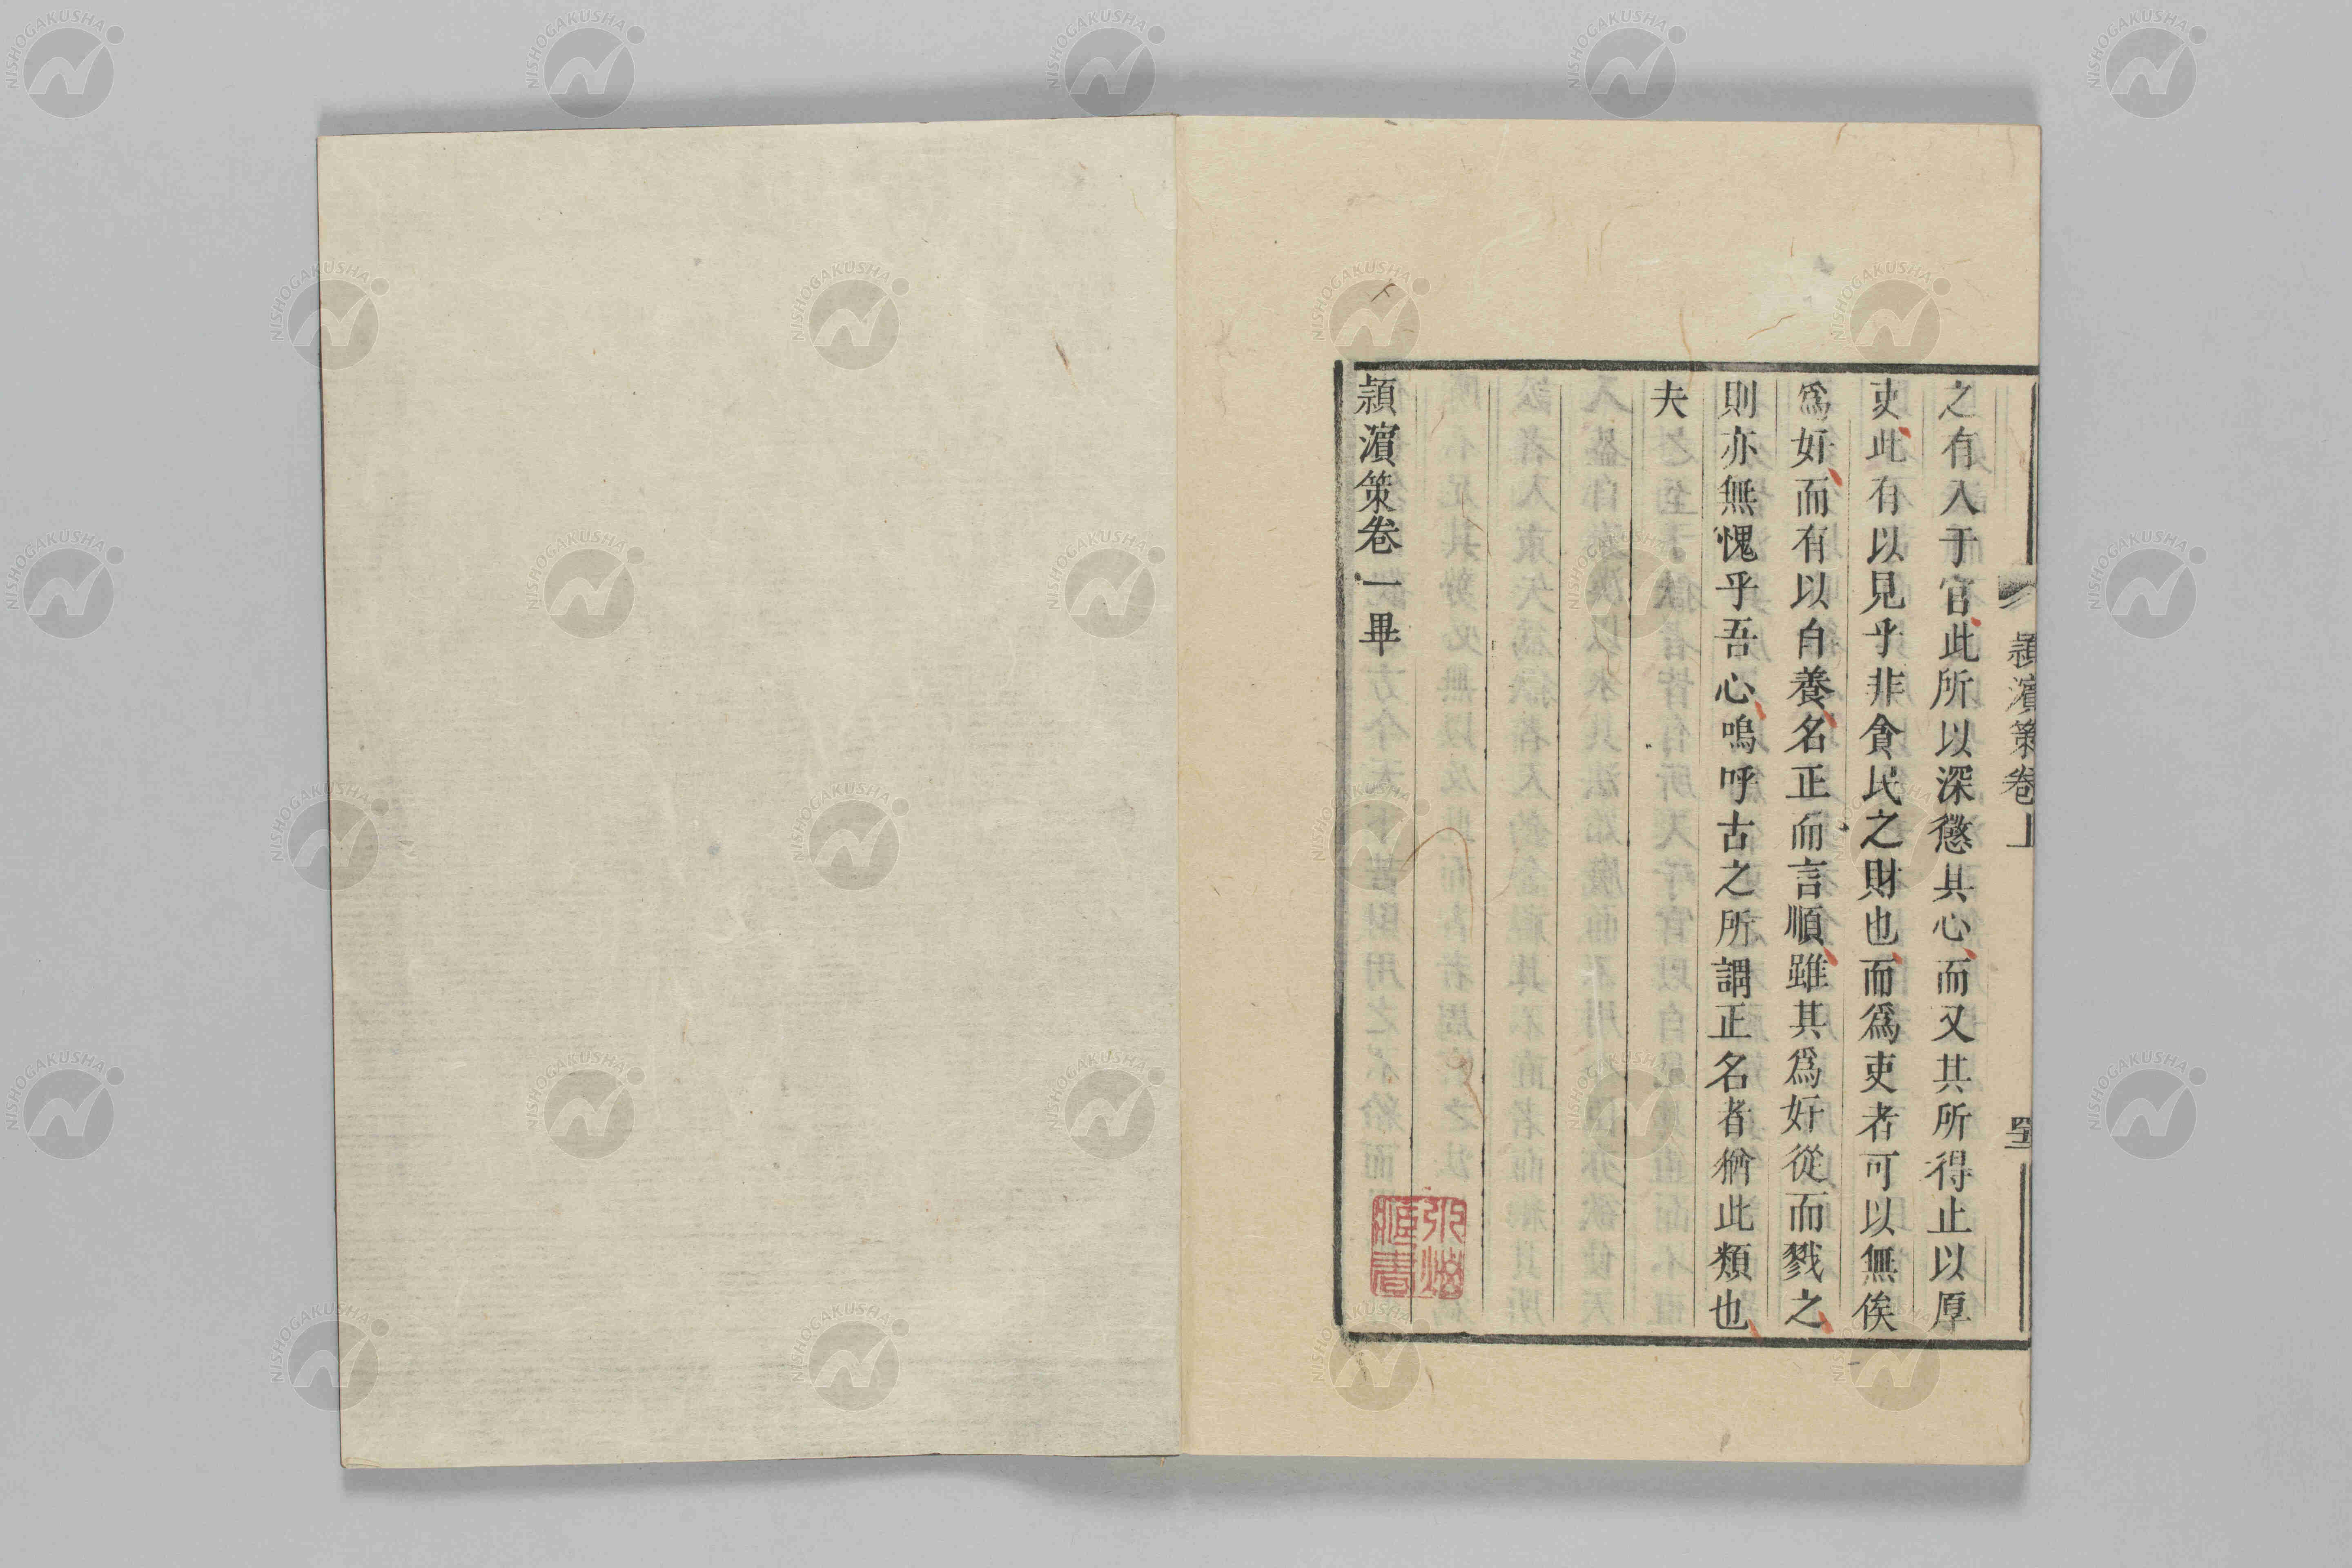 頴濵策卷上
之有入于官此所以深懲其心而又其所得止以厚
吏此有以見乎非貪民之財也而爲吏者可以無俟
爲奸而有以自養名正而言順雖其爲奸從而戮之
則亦無愧乎吾心嗚呼古之所謂正名者猶此類也
夫
頴濵策卷一畢
NISHOGAKUSHA